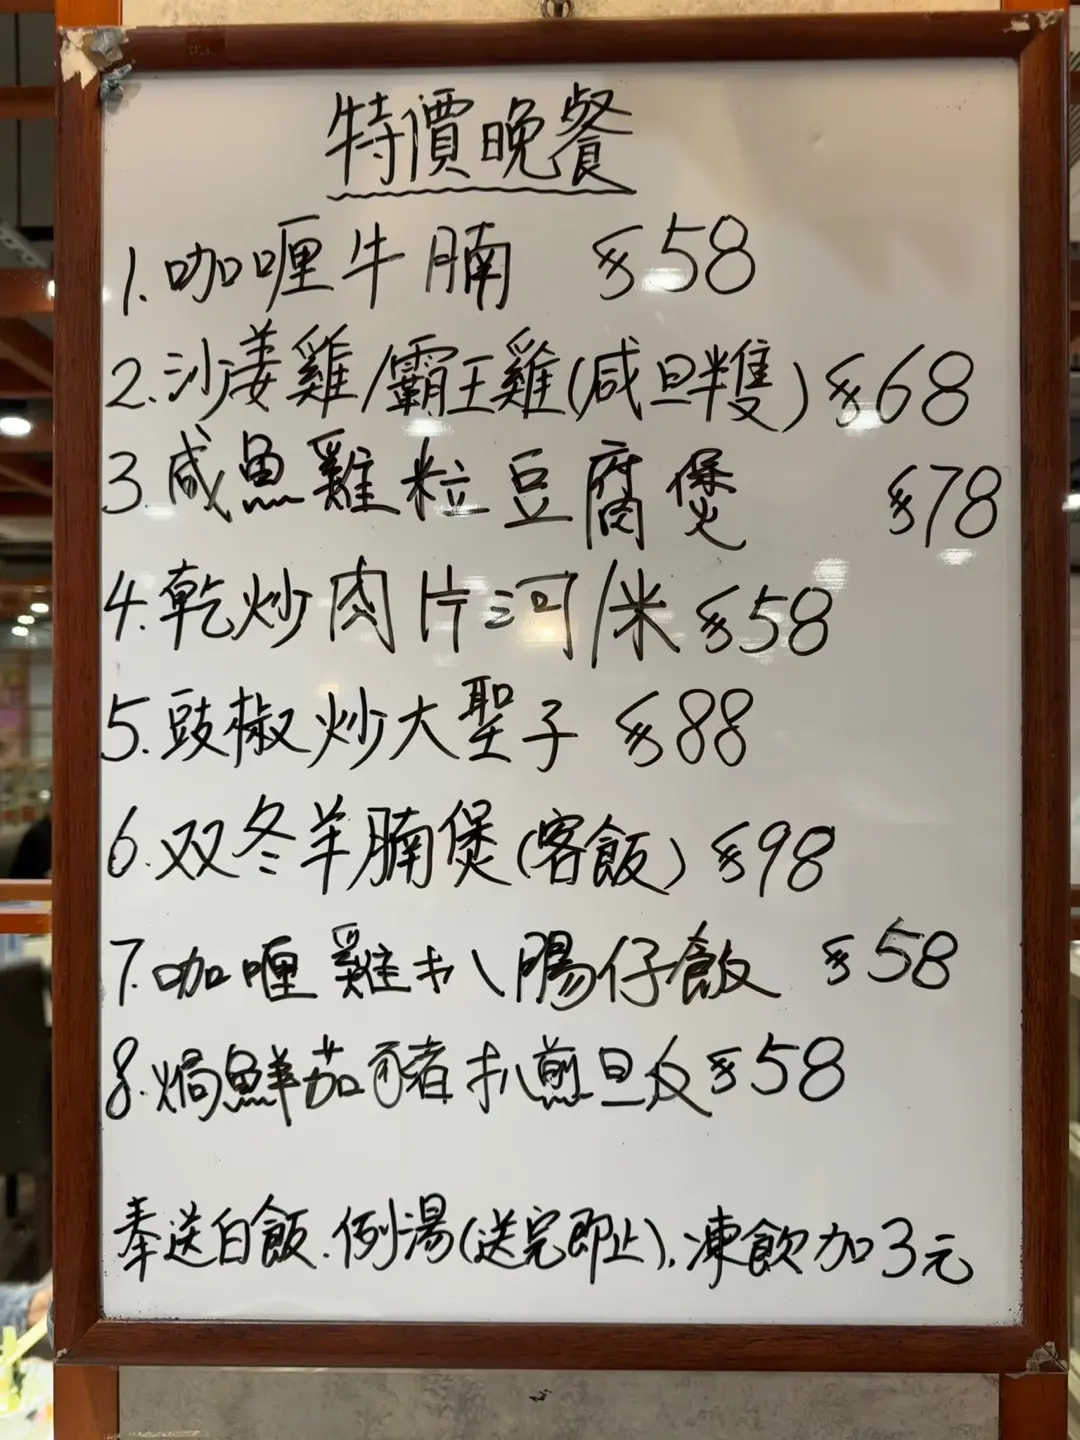 特價晚餐
1.咖喱牛腩 $58
2.沙姜雞/霸王雞(咸旦半隻) $68
3.咸魚雞粒豆腐煲 $78
4.乾炒肉片河/米 $58
5.豉椒炒大聖子 $88
6.双冬羊腩煲(客飯) $98
7.咖喱雞扒腸仔飯 $58
8.焗鮮茄豬扒煎旦反 $58
奉送白飯.例湯(送完即止).凍飲加3元